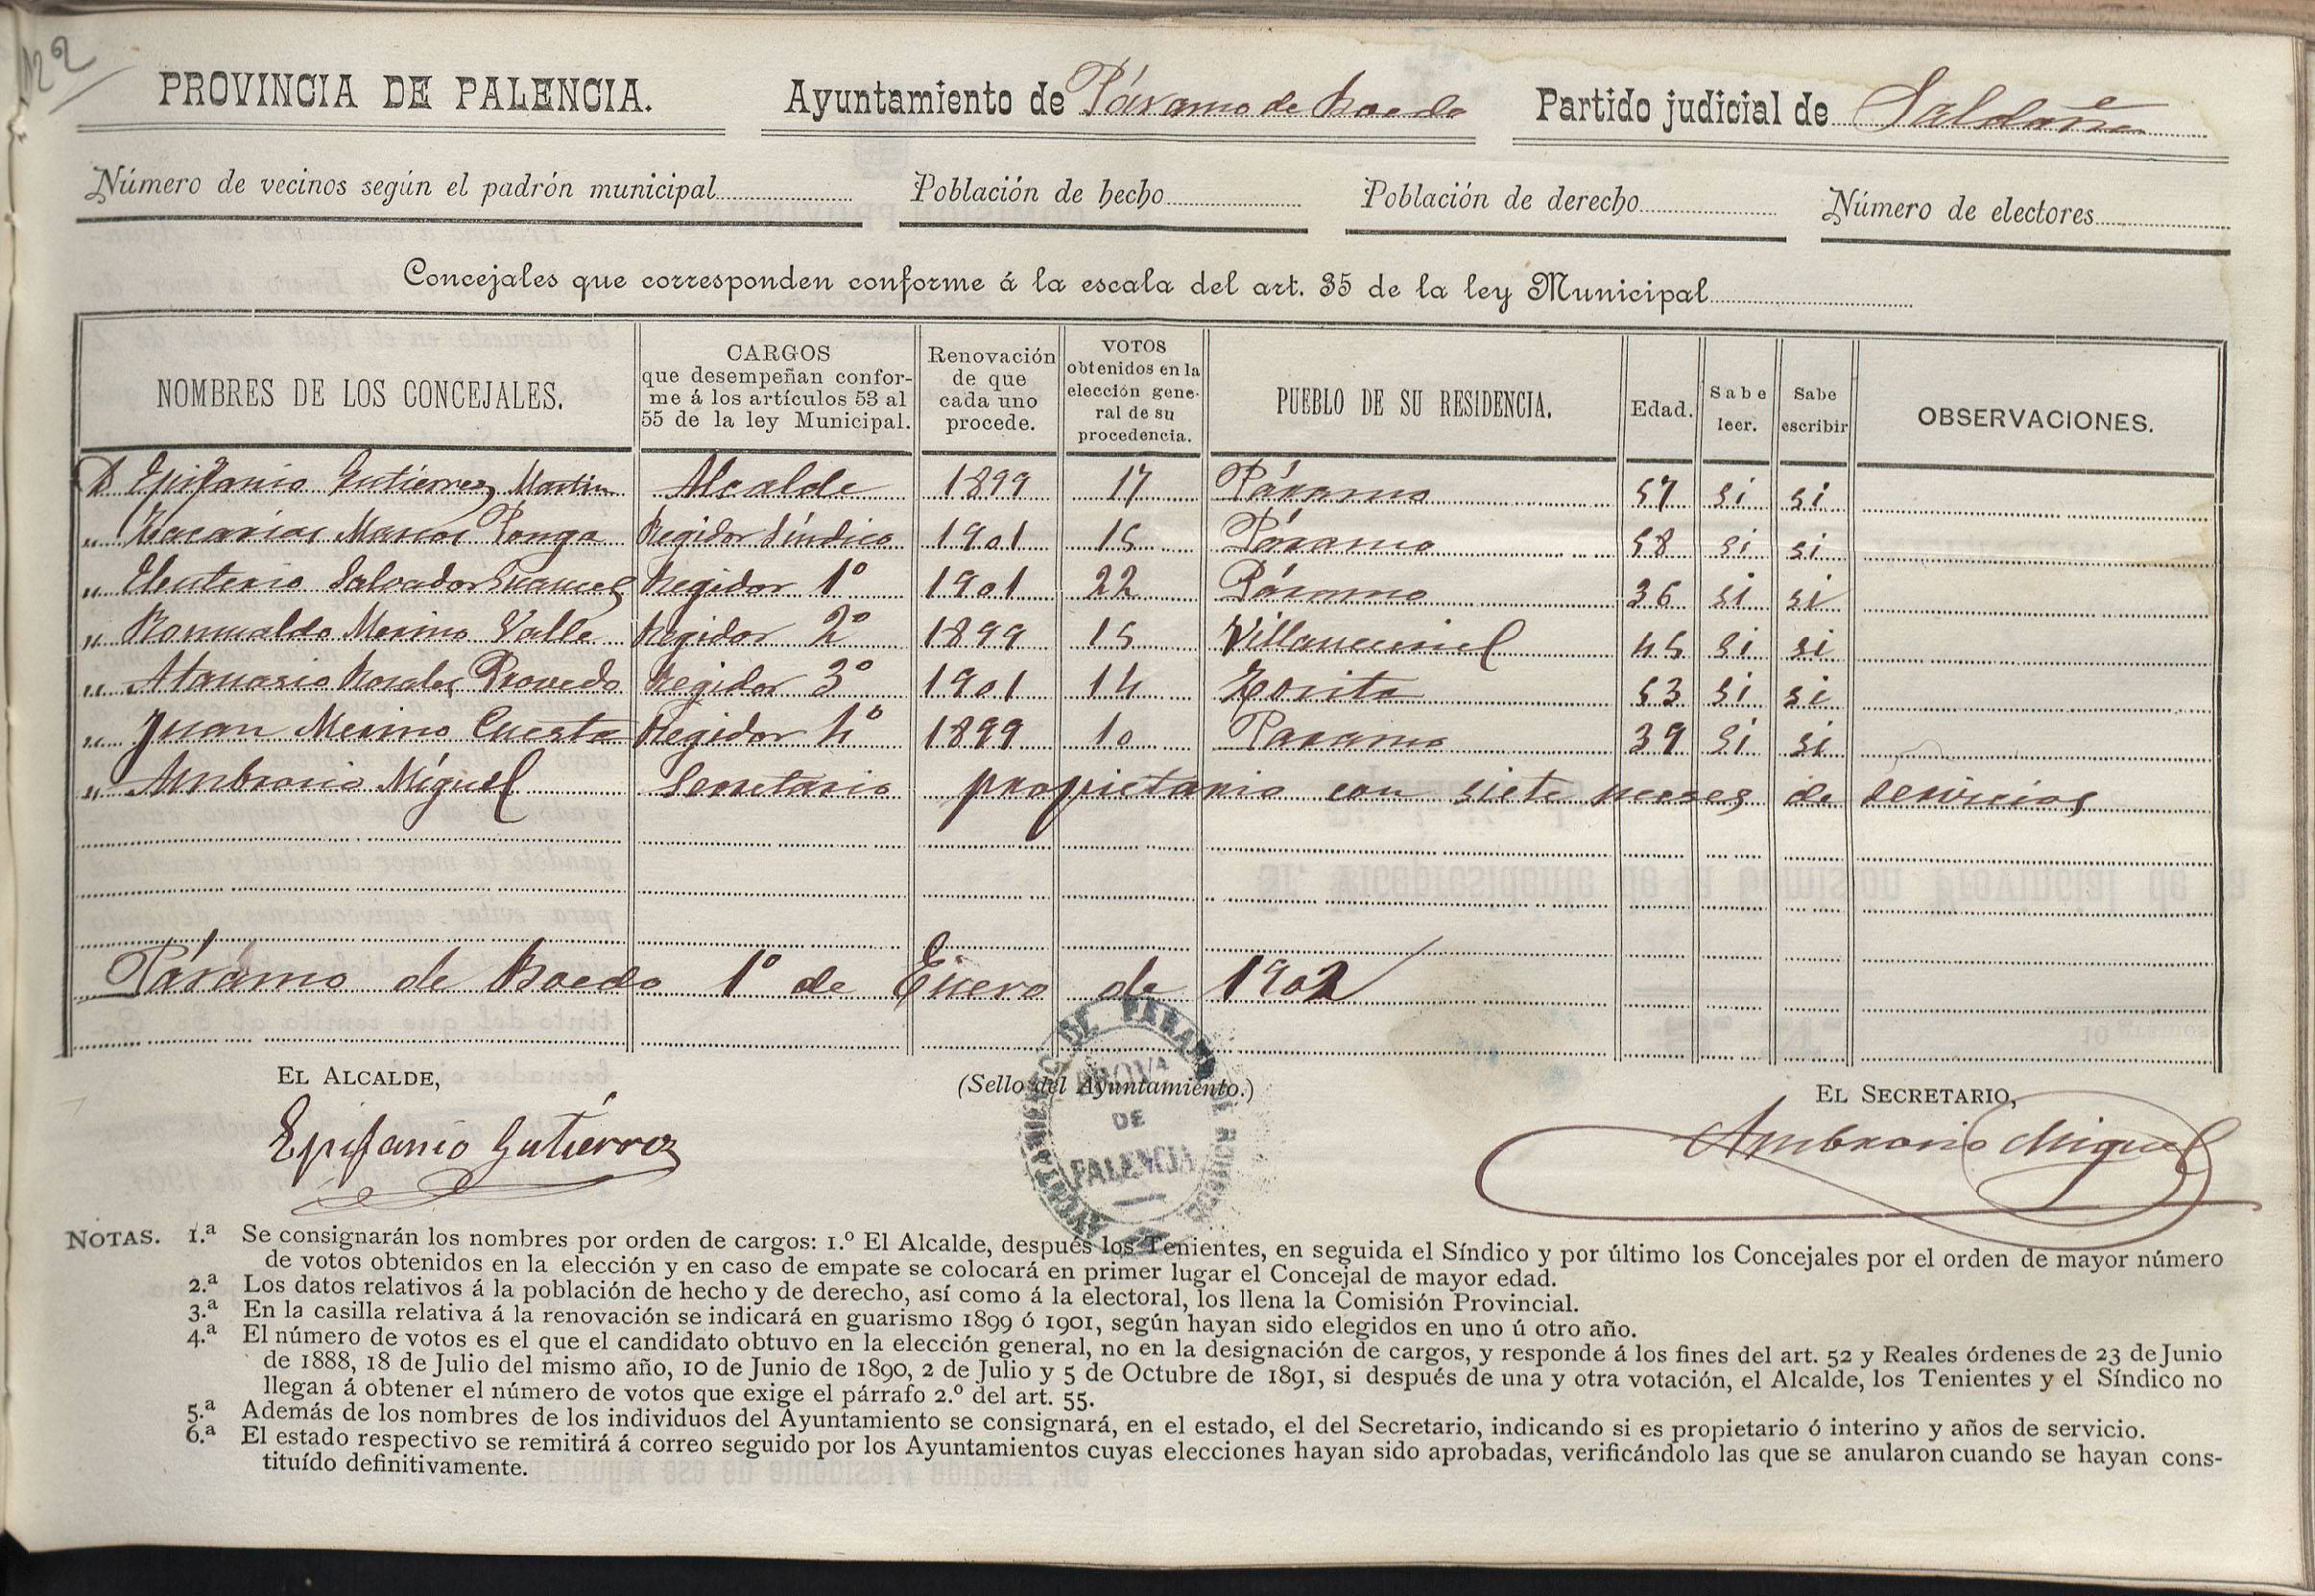 122
PROVINCIA DE PALENCIA. Ayuntamiento de Páramo de Boedo Partido judicial de Saldaña
Número de vecinos según el padrón municipal Población de hecho Población de derecho Número de electores
Concejales que corresponden conforme á la escala del art. 35 de la ley Municipal
NOMBRES DE LOS CONCEJALES. CARGOS que desempeñan confor- me á los artículos 53 al 55 de la ley Municipal. Renovación de que cada uno procede. VOTOS obtenidos en la elección gene- ral de su procedencia. PUEBLO DE SU RESIDENCIA. Edad. Sabe leer. Sabe escribir OBSERVACIONES.
D Epifanio Gutiérrez Martin Alcalde 1899 17 Páramo 57 si si
" Zacarias Marcos Ponga Regidor Síndico 1901 15 Páramo 58 si si
" Eleuterio Salvador Regidor 1º 1901 22 Páramo 36 si si
" Romualdo Merino Valle Regidor 2º 1899 15 Villaneceriel 45 si si
" Atanasio Rosales Provedo Regidor 3º 1901 14 Zorita 53 si si
" Juan Merino Cuesta Regidor 4º 1899 10 Paramo 39 si si
" Ambrosio Míguel Secretario propietario con siete meses de servicios
Páramo de Boedo 1º de Enero de 1902
EL ALCALDE, (Sello del Ayuntamiento.) EL SECRETARIO,
AYUNTAMIENTO DE PARAMO DE BOEDO
PROVª
DE
PALENCIA
Epifanio Gutiérrez Ambrosio Miguel
NOTAS. 1.ª Se consignarán los nombres por orden de cargos: 1.º El Alcalde, después los Tenientes, en seguida el Síndico y por último los Concejales por el orden de mayor número
de votos obtenidos en la elección y en caso de empate se colocará en primer lugar el Concejal de mayor edad.
2.ª Los datos relativos á la población de hecho y de derecho, así como á la electoral, los llena la Comisión Provincial.
3.ª En la casilla relativa á la renovación se indicará en guarismo 1899 ó 1901, según hayan sido elegidos en uno ú otro año.
4.ª El número de votos es el que el candidato obtuvo en la elección general, no en la designación de cargos, y responde á los fines del art. 52 y Reales órdenes de 23 de Junio
de 1888, 18 de Julio del mismo año, 10 de Junio de 1890, 2 de Julio y 5 de Octubre de 1891, si después de una y otra votación, el Alcalde, los Tenientes y el Síndico no
llegan á obtener el número de votos que exige el párrafo 2.º del art. 55.
5.ª Además de los nombres de los individuos del Ayuntamiento se consignará, en el estado, el del Secretario, indicando si es propietario ó interino y años de servicio.
6.ª El estado respectivo se remitirá á correo seguido por los Ayuntamientos cuyas elecciones hayan sido aprobadas, verificándolo las que se anularon cuando se hayan cons-
tituído definitivamente.